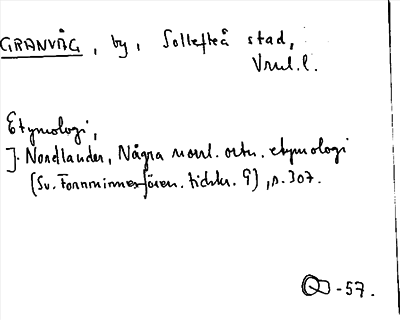 GRANVÅG, by, Sollefteå stad,
Etymologi,
J. Nordlander, Några norrl. ortn. etymologi
(Sv. Fornminnesfören. tidskr. 9), s. 307.
-57.